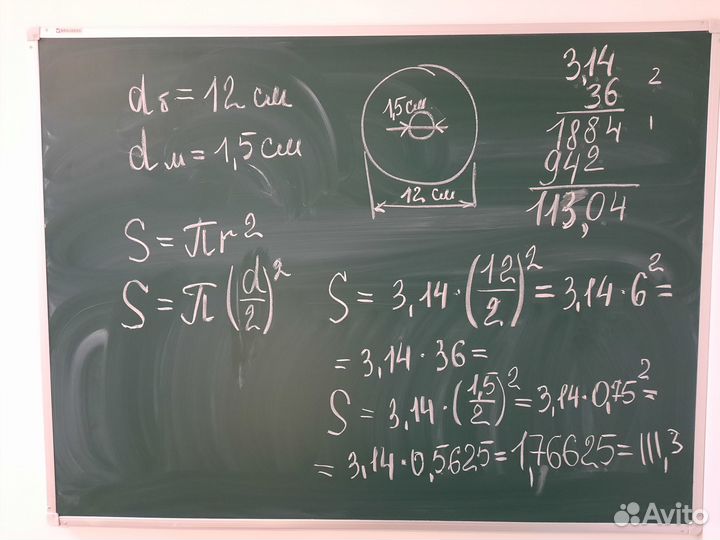 d б = 12 см
d м = 1,5 см
1,5 см
12 см
3,14
36
2
1884
1
942
113,04
S = πr²
S = π(d/2)²
S = 3,14 · (12/2)² = 3,14 · 6² =
= 3,14 · 36 =
S = 3,14 · (1,5/2)² = 3,14 · 0,75² =
= 3,14 · 0,5625 = 1,76625 = 111,3
Avito